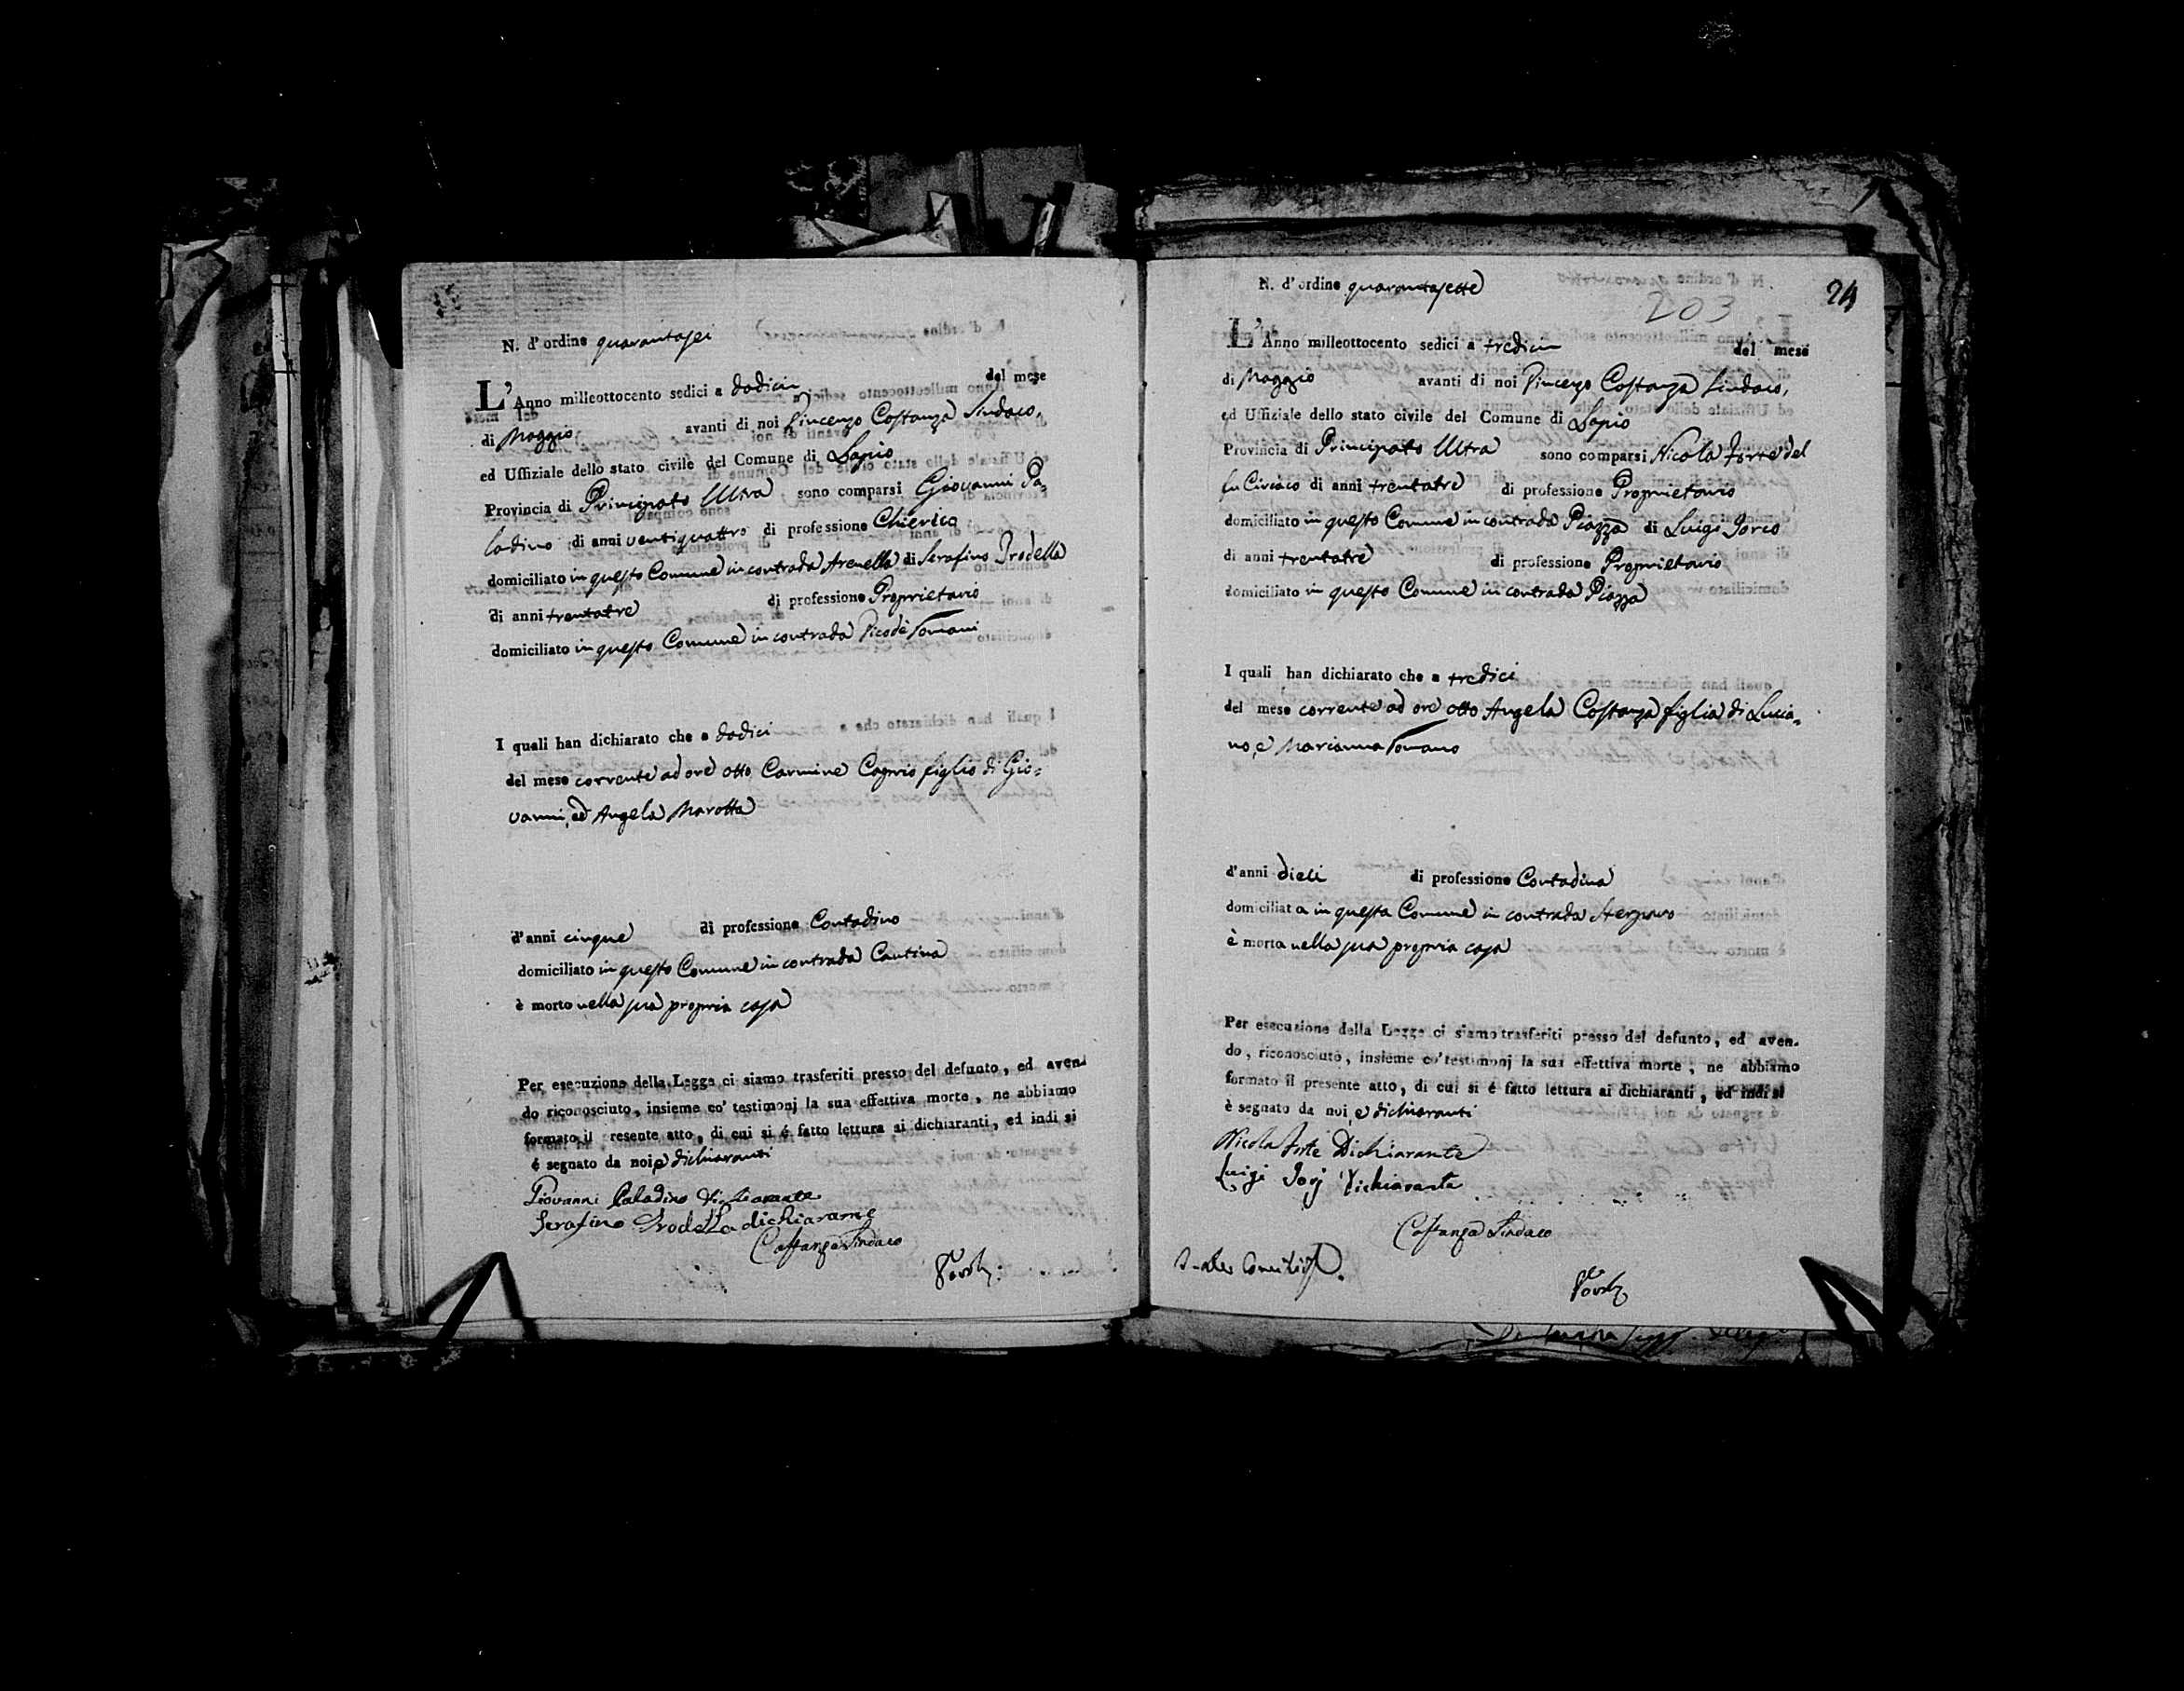 N. d'ordine quarantasei
L'Anno milleottocento sedici a dodici del mese
di Maggio avanti di noi Vincenzo Costanza Sindaco,
ed Uffiziale dello stato civile del Comune di Lapio
Provincia di Principato Ultra sono comparsi Giovanni Pa-
ladino di anni ventiquattro di professione Chierico
domiciliato in questo Comune in contrada Arenella di Serafino Trodella
di anni trentatre di professione Proprietario
domiciliato in questo Comune in contrada Vico de Romani
I quali han dichiarato che a dodici
del mese corrente ad ore otto Carmine Caprio figlio di Gio-
vanni, ed Angela Marotta
d'anni cinque di professione Contadino
domiciliato in questo Comune in contrada Cantina
è morto nella sua propria casa
Per esecuzione della Legge ci siamo trasferiti presso del defunto, ed aven-
do riconosciuto, insieme co' testimonj la sua effettiva morte, ne abbiamo
formato il resente atto, di cui si é fatto lettura ai dichiaranti, ed indi si
é segnato da noi, e dichiaranti
Giovanni Paladino dichiarante
Serafino Trodella dichiarante
Costanza Sindaco
N. d'ordine quarantasette
24
203
L'Anno milleottocento sedici a tredici del mese
di Maggio avanti di noi Vincenzo Costanza Sindaco,
ed Uffiziale dello stato civile del Comune di Lapio
Provincia di Principato Ultra sono comparsi Nicola Forte del
fu Ciriaco di anni trentatre di professione Proprietario
domiciliato in questo Comune in contrada Piazza di Luigi Iorio
di anni trentatre di professione Proprietario
domiciliato in questo Comune in contrada Piazza
I quali han dichiarato che a tredici
del mese corrente ad ore otto Angela Costanza figlia di Lucia-
no, e Marianna Romano
d'anni dieci di professione Contadina
domiciliata in questa Comune in contrada Sterparo
è morta nella sua propria casa
Per esecuzione della Legge ci siamo trasferiti presso del defunto, ed aven-
do, riconosciuto, insieme co' testimonj la sua effettiva morte, ne abbiamo
formato il presente atto, di cui si é fatto lettura ai dichiaranti, ed indi si
è segnato da noi, e dichiaranti
Nicola Forte Dichiarante
Luigi Iorj Dichiarante
Costanza Sindaco